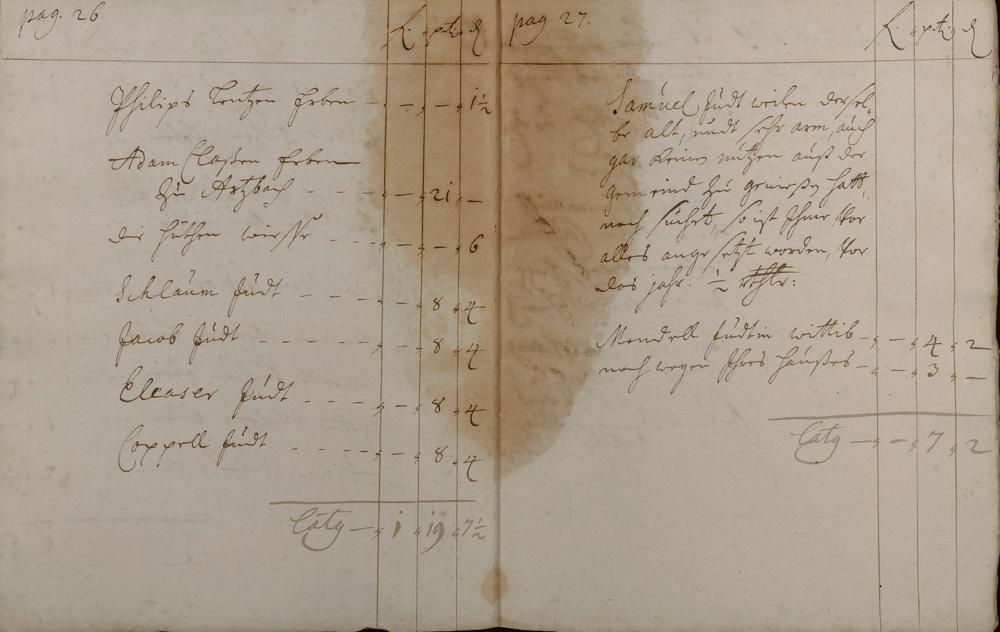 pag. 26.
R. ptz. d
Philips Lentzen Erben - „ - „ - „ 1½
Adam Claßen Erben
zu Artzbach - - - „ - „ 21 „ -
die Hüthen wiesse - - - „ - „ - „ 6
Schlaum Judt - - - „ - „ 8 „ 4
Jacob Judt - - - - - „ - „ 8 „ 4
Eleaser Judt - - - - „ - „ 8 „ 4
Coppell Judt - - - - „ - „ 8 „ 4
Latg - „ 1 „ 19 „ 7½
pag 27.
R. ptz. d
Samuel Judt weilen dersel-
be alt, undt sehr arm, auch
gar keinen nutzen auß der
gemeind zu geniesen hatt
noch suchet, so ist Ihme Vor
alles angesetzt worden, Vor
das jahr. ½ rthlr:
Mendell Judtin wittib - „ - „ 4 „ 2
noch wegen Ihres haußes - „ - „ 3 „ -
Latg - „ - „ 7 „ 2